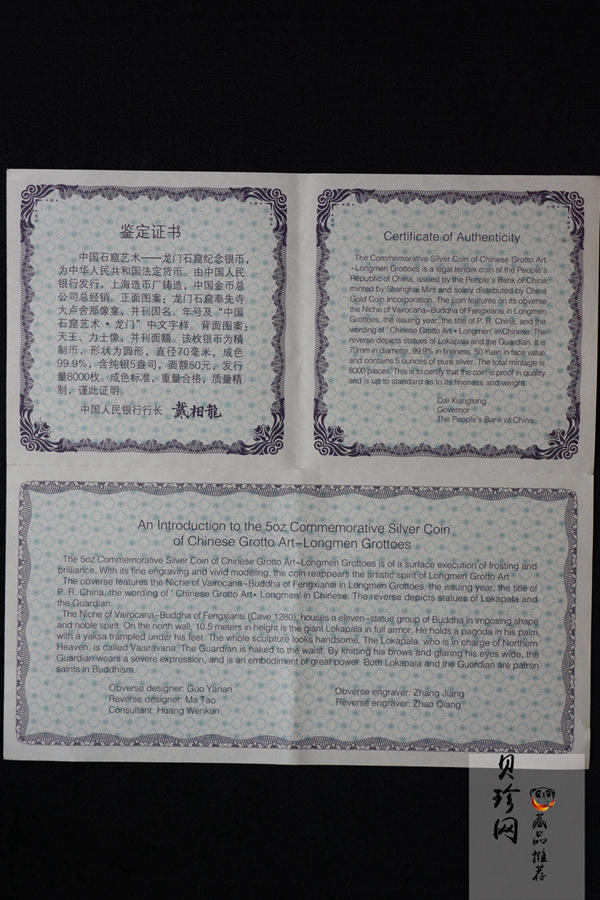 鉴定证书
中国石窟艺术——龙门石窟纪念银币，
为中华人民共和国法定货币。由中国人民
银行发行，上海造币厂铸造，中国金币总
公司总经销。正面图案：龙门石窟奉先寺
大卢舍那像龛，并刊国名、年号及“中国
石窟艺术·龙门”中文字样。背面图案：
天王、力士像，并刊面额。该枚银币为精
制币，形状为圆形，直径70毫米，成色
99.9%，含纯银5盎司，面额50元，发行
量8000枚。成色标准，重量合格，质量精
制，谨此证明。
中国人民银行行长 戴相龙
Certificate of Authenticity
The Commemorative Silver Coin of Chinese Grotto Art
-Longmen Grottoes is a legal tender coin of the People's
Republic of China, issued by the People's Bank of China,
minted by Shanghai Mint and solely distributed by China
Gold Coin Incorporation. The coin features on its obverse
the Niche of Vairocana-Buddha of Fengxiansi in Longmen
Grottoes, the issuing year, the title of P. R. China, and the
wording of ' Chinese Grotto Art • Longmen' in Chinese. The
reverse depicts statues of Lokapala and the Guardian. It is
70mm in diameter, 99.9% in fineness, 50 Yuan in face value,
and contains 5 ounces of pure silver. The total mintage is
8000 pieces. This is to certify that the coin is proof in quality
and is up to standard as to its fineness and weight.
Dai Xianglong
Governor
The People's Bank of China
An Introduction to the 5oz Commemorative Silver Coin
of Chinese Grotto Art-Longmen Grottoes
The 5oz Commemorative Silver Coin of Chinese Grotto Art-Longmen Grottoes is of a surface execution of frosting and
brilliance. With its fine engraving and vivid modeling, the coin reappears the artistic spirit of Longmen Grotto Art.
The obverse features the Niche of Vairocana-Buddha of Fengxiansi in Longmen Grottoes, the issuing year, the title of
P. R. China, the wording of ' Chinese Grotto Art• Longmen' in Chinese. The reverse depicts statues of Lokapala and
the Guardian.
The Niche of Vairocana-Buddha of Fengxiansi (Cave 1280), houses a eleven-statue group of Buddha in imposing shape
and noble spirit. On the north wall, 10.5 meters in height is the giant Lokapala in full armor. He holds a pagoda in his palm,
with a yaksa trampled under his feet. The whole sculpture looks handsome. The Lokapala, who is in charge of Northern
Heaven, is called Vaisravana. The Guardian is naked to the waist. By knitting his brows and glaring his eyes wide, the
Guardian wears a severe expression, and is an embodiment of great power. Both Lokapala and the Guardian are patron
saints in Buddhism.
Obverse designer: Guo Yanan
Reverse designer: Ma Tao
Consultant: Huang Wenkun
Obverse engraver: Zhang Jiang
Reverse engraver: Zhao Qiang
贝珍网
藏品推荐